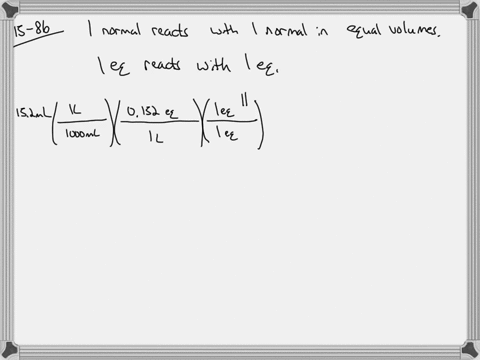 15-86 1 normal reacts with 1 normal in equal volumes.
1 eq reacts with 1 eq.
15.2mL (1L / 1000mL)(0.152 eq / 1L)(1 eq " / 1 eq)